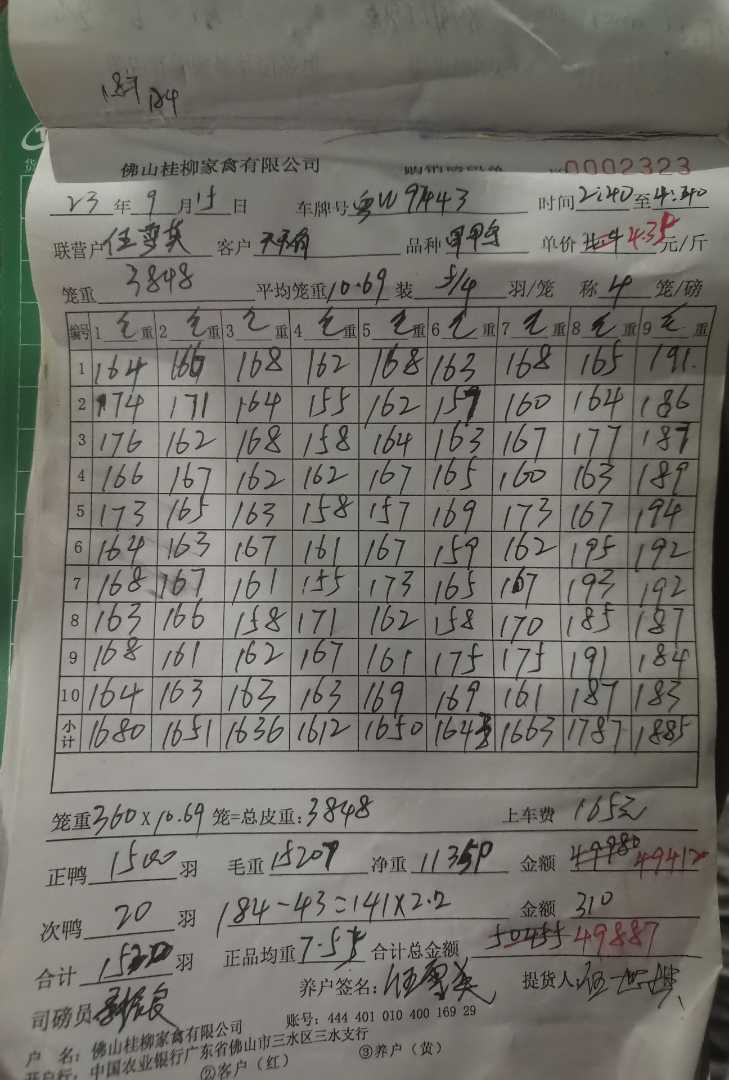 佛山桂柳家禽有限公司 0002323
23 年 9 月 15 日 车牌号 粤W9A443 时间 2:40 至 4:340
联营户 任雪英 客户 品种 单价 4.35 元/斤
笼重 3848 平均笼重 10.69 装 5/4 羽/笼 称 4 笼/磅
编号 1 毛 重 2 毛 重 3 毛 重 4 毛 重 5 毛 重 6 毛 重 7 毛 重 8 毛 重 9 毛 重
1 164 166 168 162 168 163 168 165 191
2 174 171 164 155 162 157 160 164 186
3 176 162 168 158 164 163 167 177 187
4 166 167 162 162 167 165 160 163 189
5 173 165 163 158 157 169 173 167 194
6 164 163 167 161 167 159 162 195 192
7 168 167 161 155 173 165 167 193 192
8 163 166 158 171 162 158 170 185 187
9 168 161 162 167 161 175 175 191 184
10 164 163 163 163 169 169 161 187 183
小计 1680 1651 1636 1612 1650 1643 1663 1787 1885
笼重 360×10.69 笼=总皮重: 3848 上车费 165元
正鸭 1500 羽 毛重 15207 净重 11359 金额 49980 49412
次鸭 20 羽 184-43=141×2.2 金额 310
合计 1520 羽 正品均重 7.57 合计总金额 50455 49887
司磅员 养户签名: 任雪英 提货人
户 名: 佛山桂柳家禽有限公司 账号: 444 401 010 400 169 29
开户行: 中国农业银行广东省佛山市三水区三水支行
②客户（红） ③养户（黄）